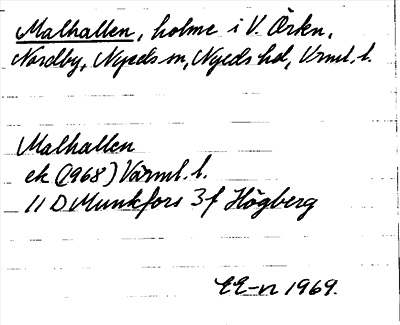 Malhallen, holme i V. Örten,
Nordby, Nyeds sn, Nyeds hd, Vrml. l.
Malhallen
ek (1968) Värml. l.
11 D Munkfors 3f Högberg
EE-n 1969.